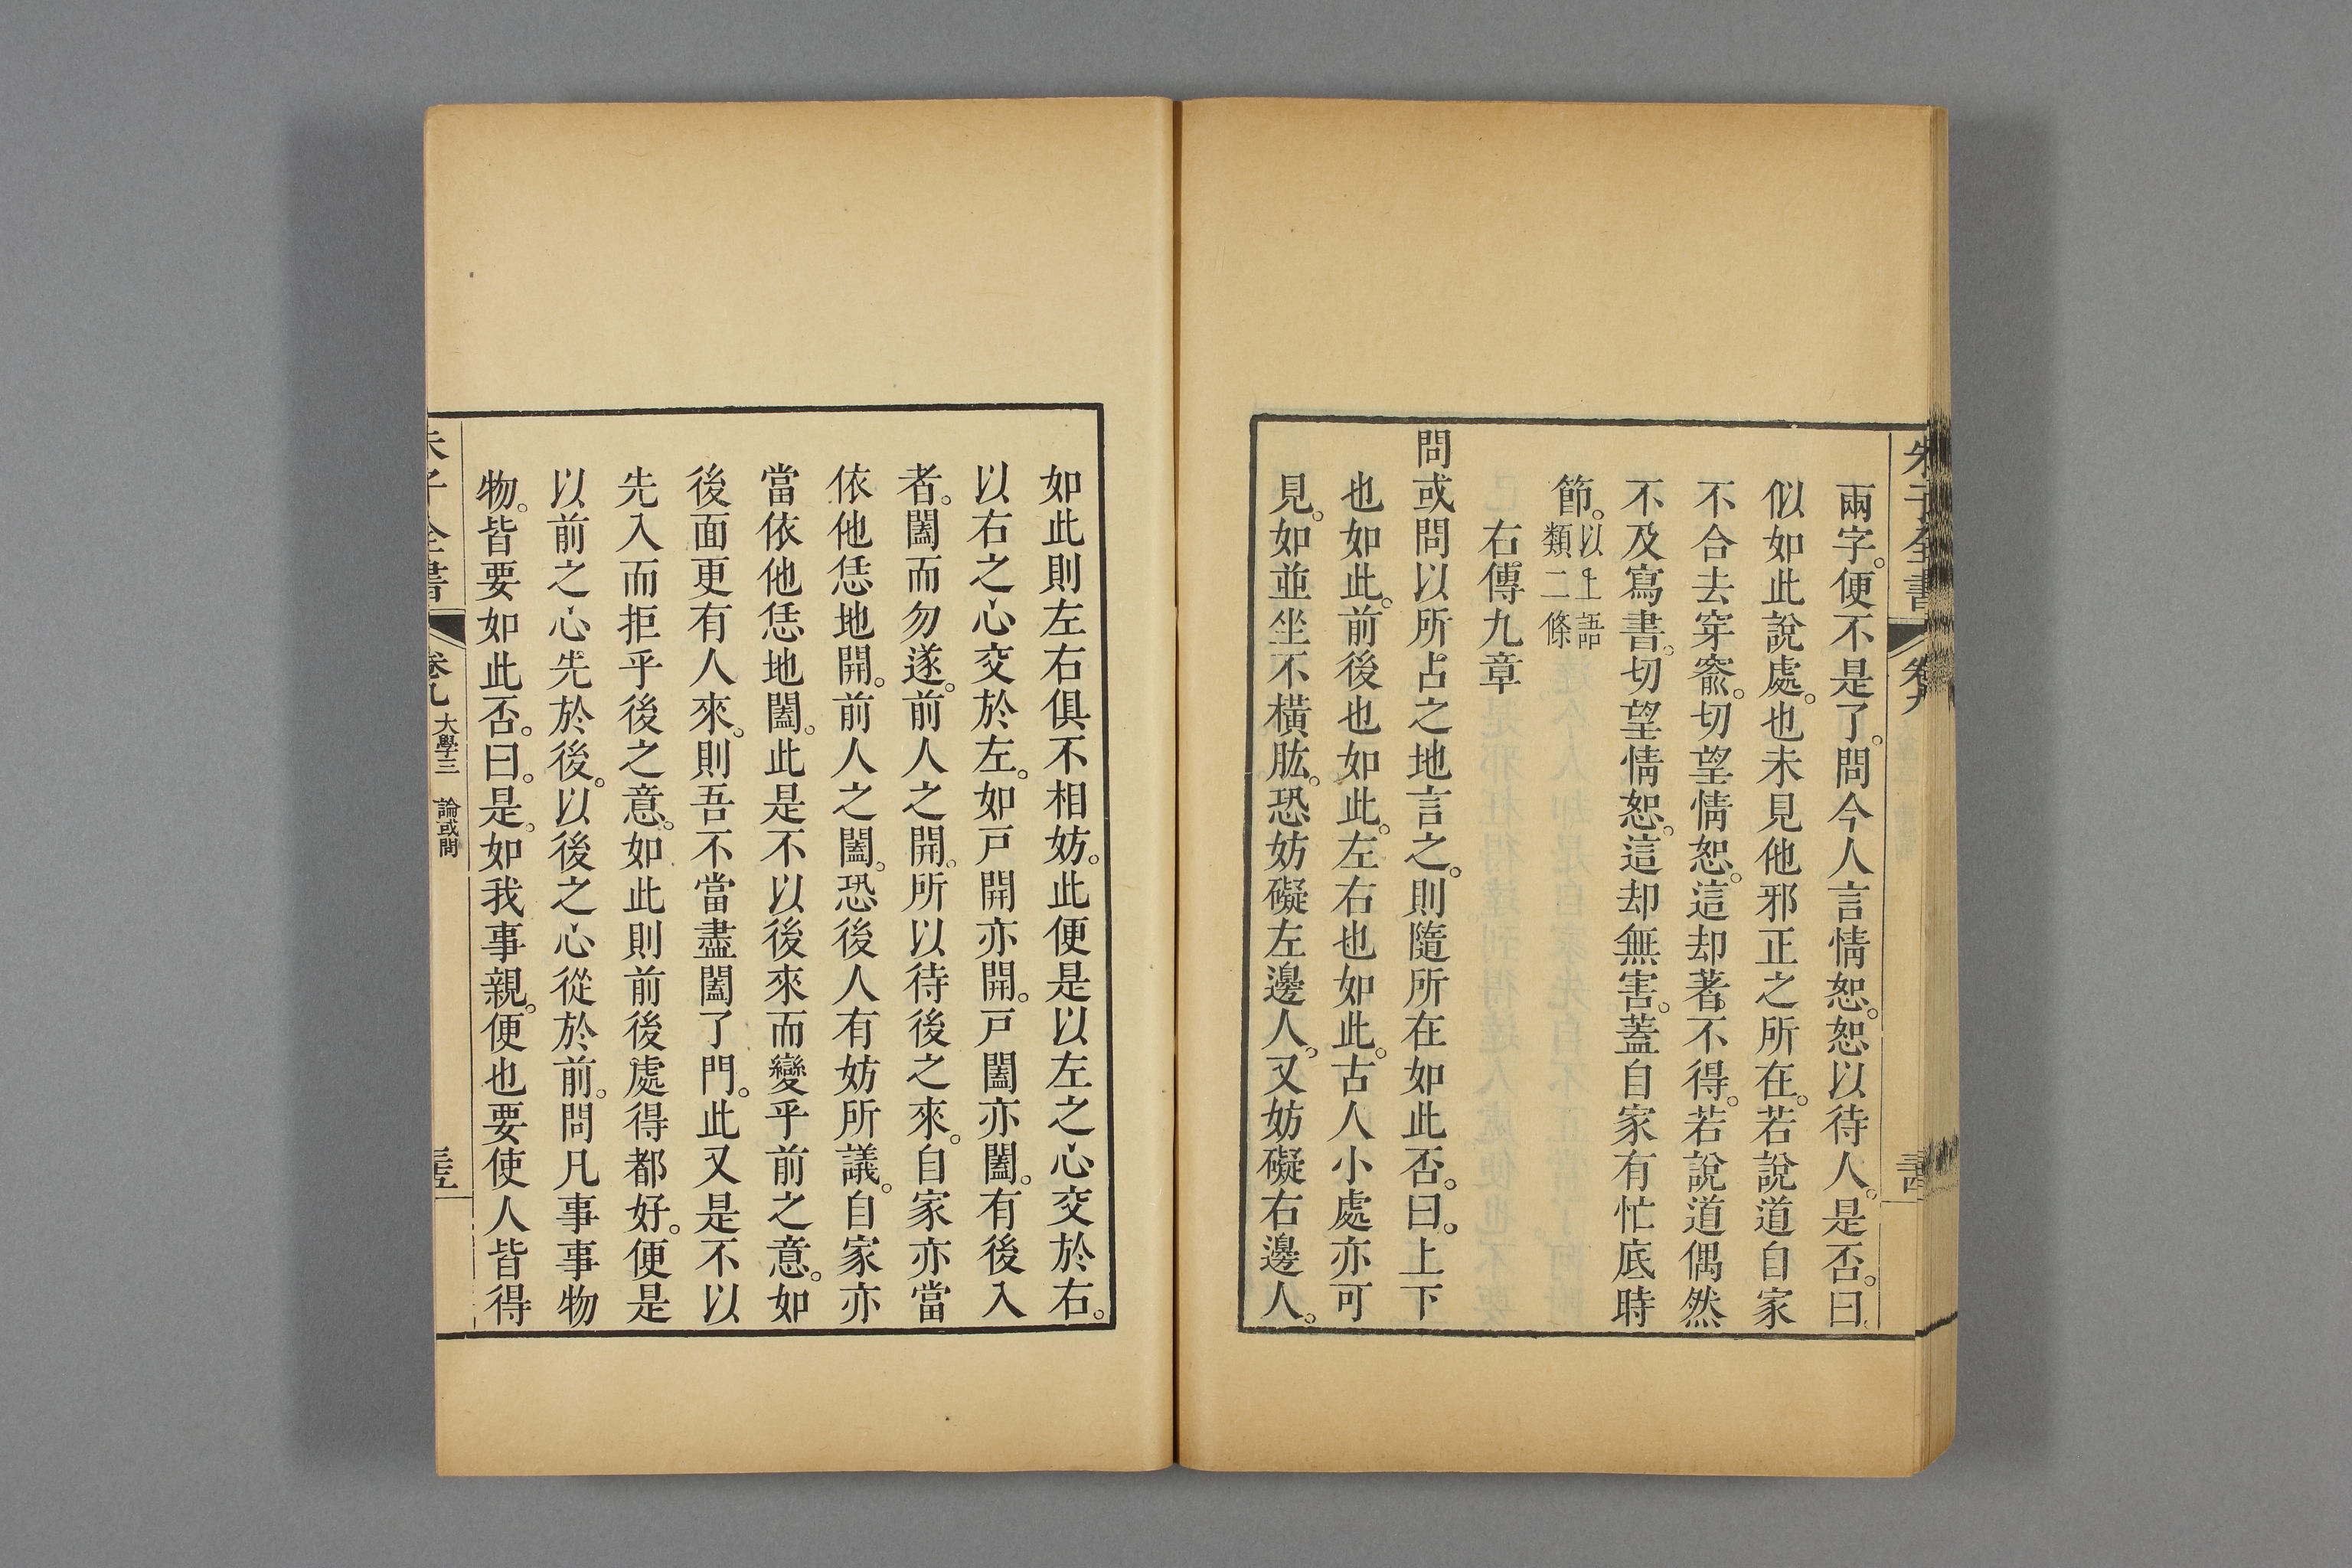 朱子全書 卷九
兩字。便不是了。問今人言情恕。恕以待人。是否。曰。
似如此說處。也未見他邪正之所在。若說道自家
不合去穿窬。切望情恕。這却著不得。若說道偶然
不及寫書。切望情恕。這却無害。蓋自家有忙底時
節。以上語類二條
右傳九章
問或問以所占之地言之。則隨所在如此否。曰。上下
也如此。前後也如此。左右也如此。古人小處亦可
見。如並坐不橫肱。恐妨礙左邊人。又妨礙右邊人。
如此則左右俱不相妨。此便是以左之心交於右。
以右之心交於左。如戶開亦開。戶闔亦闔。有後入
者。闔而勿遂。前人之開。所以待後之來。自家亦當
依他恁地開。前人之闔。恐後人有妨所議。自家亦
當依他恁地闔。此是不以後來而變乎前之意。如
後面更有人來。則吾不當盡闔了門。此又是不以
先入而拒乎後之意。如此則前後處得都好。便是
以前之心先於後。以後之心從於前。問凡事事物
物。皆要如此否。曰。是。如我事親。便也要使人皆得
朱子全書 卷九 大學三 論或問